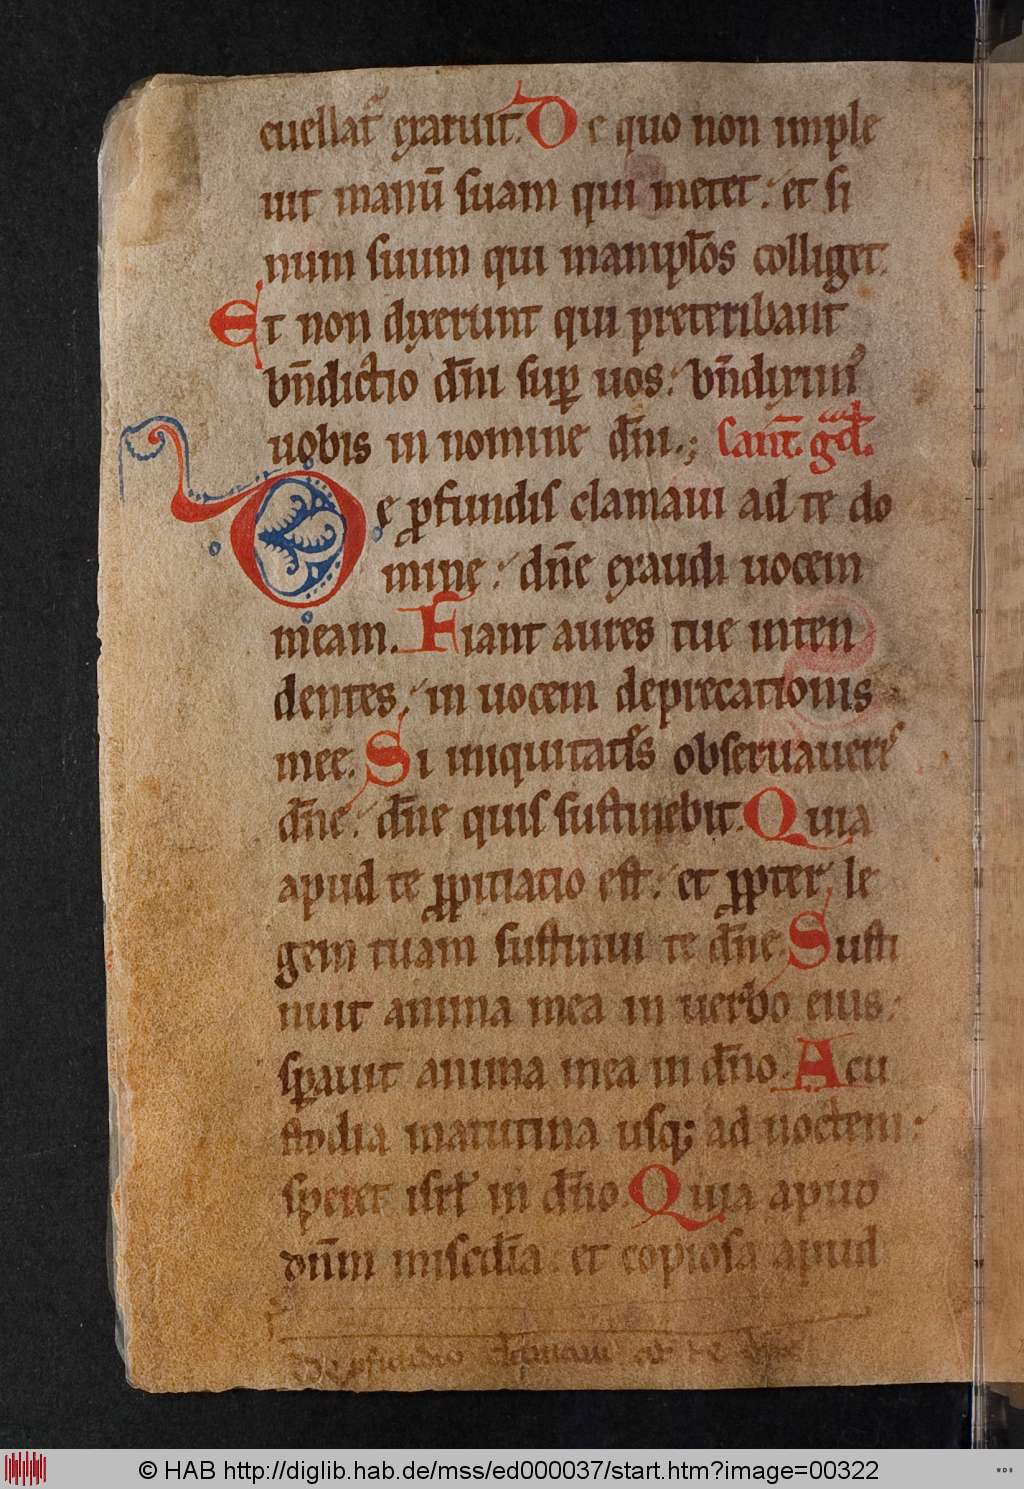 euellat᷑ exaruit. De quo non imple
uit manū suam qui metet: et si
num suum qui manipl̄os colliget.
Et non dixerunt qui preteribant
bn̄dictio dn̄i sup̲ uos: bn̄dixim᷒
uobis in nomine dn̄i.; Cant̄. gᵃd̄.
De ꝓfundis clamaui ad te do
mine: dn̄e exaudi uocem
meam. Fiant aures tue inten
dentes: in uocem deprecationis
mee. Si iniquitates obseruaueris
dn̄e: dn̄e quis sustinebit. Quia
apud te ꝓpitiatio est: et ꝓpter le
gem tuam sustinui te dn̄e. Susti
nuit anima mea in uerbo eius:
sꝑauit anima mea in dn̄o. A cu
stodia matutina usq; ad noctem:
speret isrl̄ in dn̄o. Quia apud
dn̄m misc̄dia: et copiosa apud
De ꝓfundis clamaui ad te dn̄e
© HAB http://diglib.hab.de/mss/ed000037/start.htm?image=00322